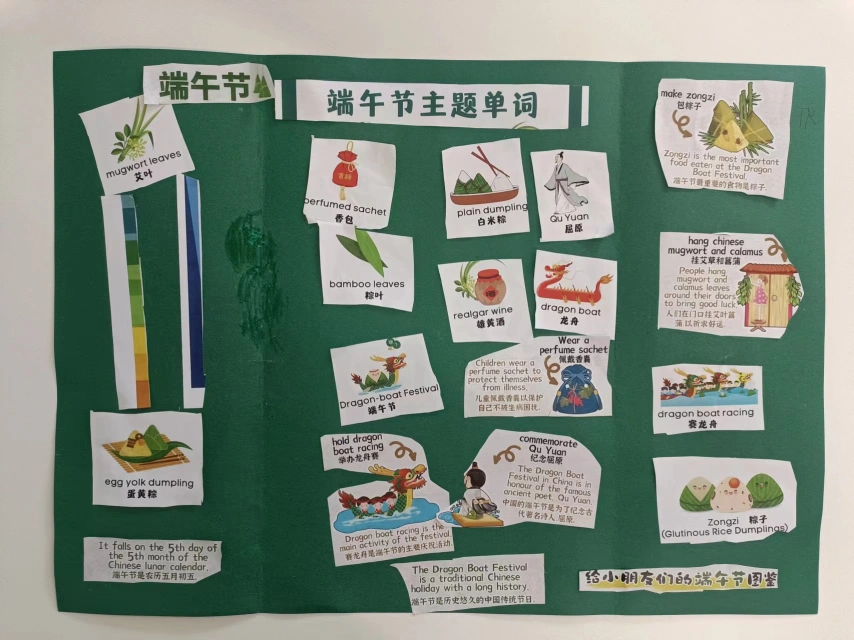 端午节
mugwort leaves
艾叶
egg yolk dumpling
蛋黄粽
It falls on the 5th day of
the 5th month of the
Chinese lunar calendar.
端午节是农历五月初五.
端午节主题单词
perfumed sachet
香包
plain dumpling
白米粽
Qu Yuan
屈原
bamboo leaves
粽叶
realgar wine
雄黄酒
dragon boat
龙舟
Dragon-boat Festival
端午节
Wear a
perfume sachet
佩戴香囊
Children wear a
perfume sachet to
protect themselves
from illness.
儿童佩戴香囊以保护
自己不被生病困扰.
hold dragon
boat racing
举办龙舟赛
Dragon boat racing is the
main activity of the festival.
赛龙舟是端午节的主要庆祝活动.
commemorate
Qu Yuan
纪念屈原
The Dragon Boat
Festival in China is in
honour of the famous
ancient poet, Qu Yuan.
中国的端午节是为了纪念古
代著名诗人屈原.
The Dragon Boat Festival
is a traditional Chinese
holiday with a long history.
端午节是历史悠久的中国传统节日.
make zongzi
包粽子
Zongzi is the most important
food eaten at the Dragon
Boat Festival.
端午节最重要的食物是粽子.
hang chinese
mugwort and calamus
挂艾草和菖蒲
People hang
mugwort and
calamus leaves
around their doors
to bring good luck.
人们在门口挂艾叶菖
蒲以祈求好运.
dragon boat racing
赛龙舟
Zongzi 粽子
(Glutinous Rice Dumplings)
给小朋友们的端午节图鉴